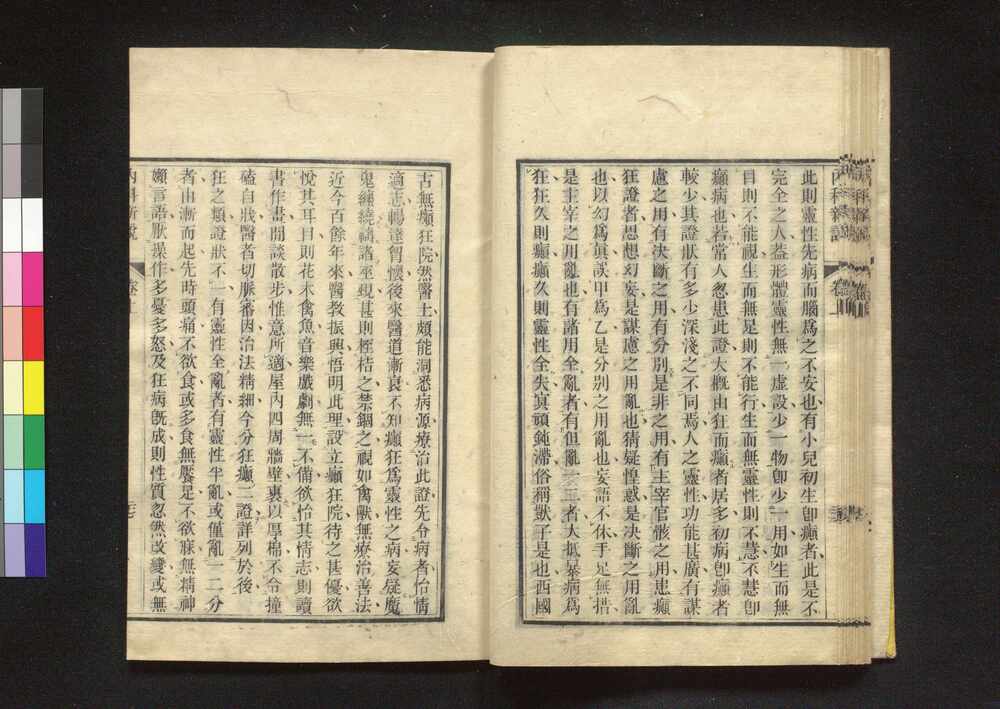 此則靈性先病而腦爲之不安也有小兒初生卽癲者此是不
完全之人葢形體靈性無一虛設少一物卽少一用如生而無
目則不能視生而無足則不能行生而無靈性則不慧不慧卽
癲病也若當人忽患此證大槪由狂而癲者居多初病卽癲者
較少其證狀有多少深淺之不同焉人之靈性功能甚廣有謀
慮之用有決斷之用有分別是非之用有主宰官骸之用患癲
狂證者思想幻妄是謀慮之用亂也猜疑惶惑是決斷之用亂
也以幻爲眞誤甲爲乙是分別之用亂也妄語不休手足無措
是主宰之用亂也有諸用全亂者有但亂一二者大抵暴病爲
狂狂久則癲癲久則靈性全失冥頑鈍滯俗稱獃子是也西國
古無癲狂院然醫士頗能洞悉病源療治此證先令病者怡情
適志暢達胷懷後來醫道漸衰不知癲狂爲靈性之病妄疑魔
鬼纏繞禱諸巫覡甚則桎梏之禁錮之視如禽獸無療治善法
近今百餘年來醫敎振興悟明此理設立癲狂院待之甚優欲
悅其耳目則花木禽魚音樂戲劇無一不備欲怡其情志則讀
書作畫閒談散步惟意所適屋內四周牆壁裹以厚棉不令撞
磕自戕醫者切脈審因治法精細今分狂癲二證詳列於後
狂之類證狀不一有靈性全亂者有靈性半亂或僅亂一二分
者由漸而起先時頭痛不欲食或多食無饜足不欲寐無精神
嬾言語厭操作多憂多怒及狂病旣成則性質忽然改變或無
內科新說
卷上